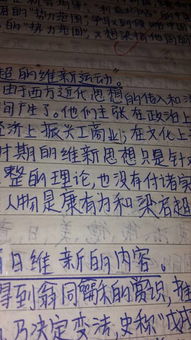 的"势力范围"
超的维新运动。
由于西方近代思想的传入和
间产生了。他们主张在政治上
经济上振兴工商业；在文化上
时期的维新思想只是针
整的理论，也没有付诸
人物是康有为和梁启超
日维新的内容。
得到翁同龢的赏识，推
乃决定变法，史称"戊戌